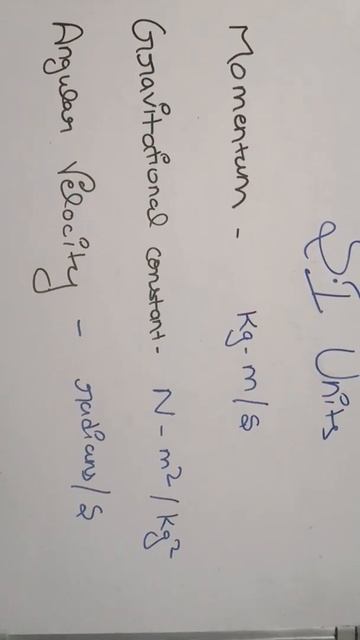 S.I Units
Momentum - Kg-m/s
Gravitational constant - N-m²/kg²
Angular Velocity - radians/s